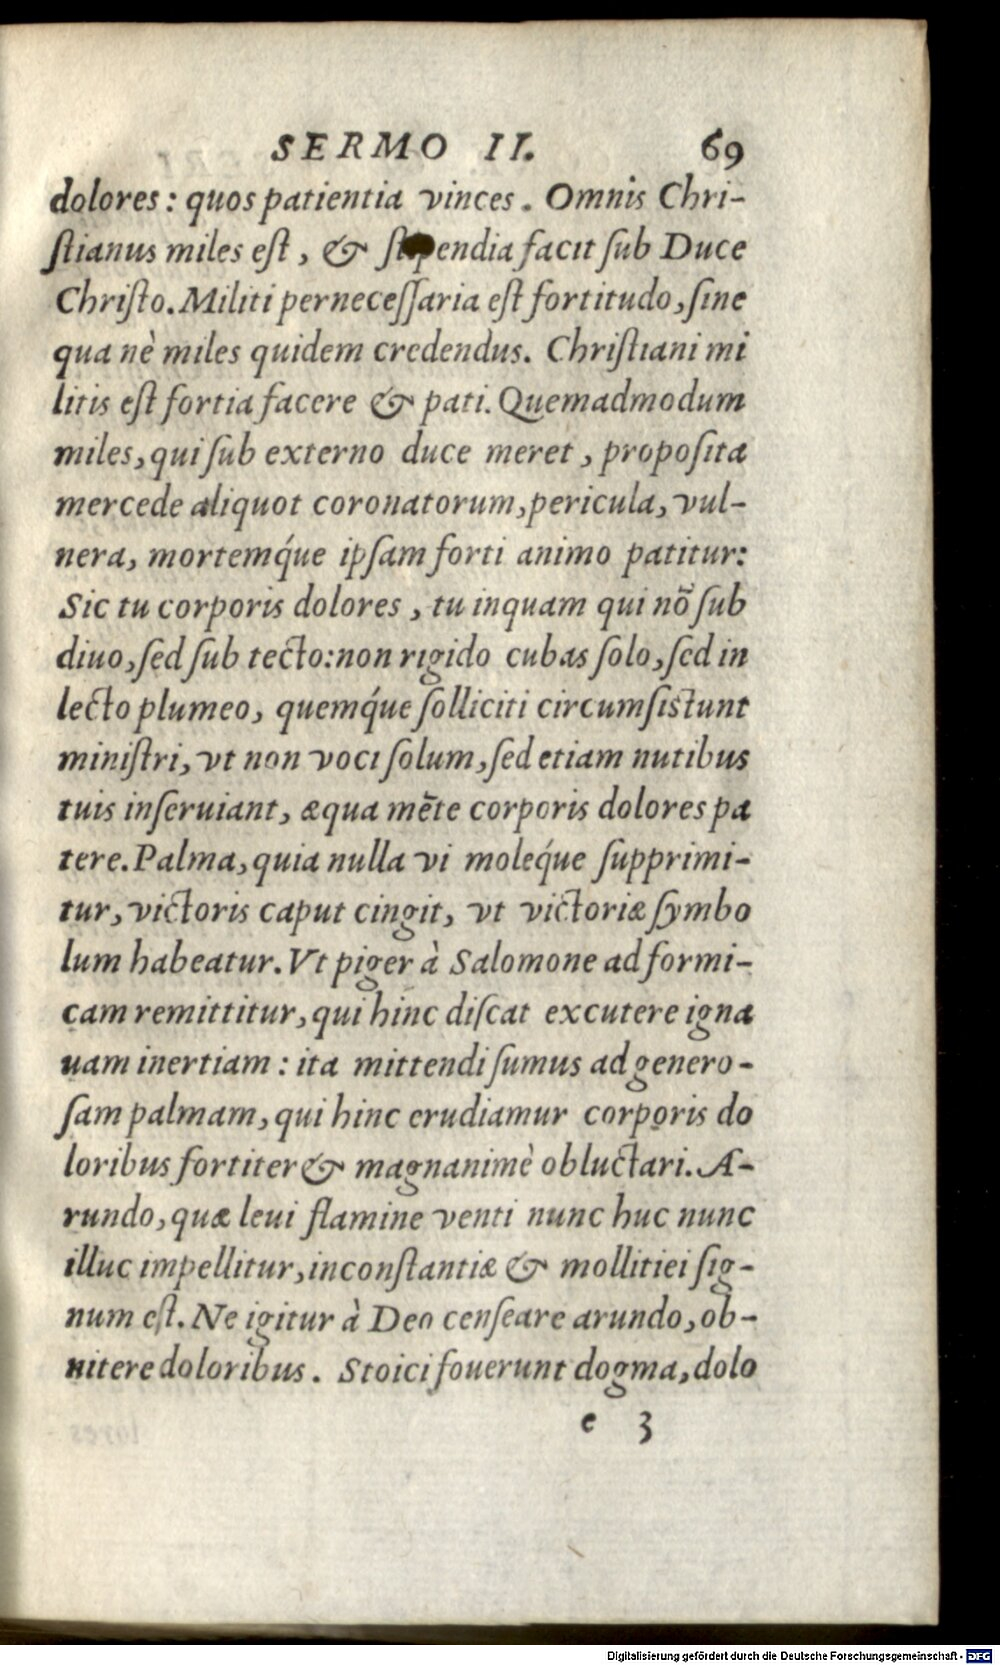 SERMO II. 69
dolores: quos patientia vinces. Omnis Chri-
ſtianus miles eſt, & ſtipendia facit ſub Duce
Chriſto. Militi perneceſſaria eſt fortitudo, ſine
qua nè miles quidem credendus. Chriſtiani mi
litis eſt fortia facere & pati. Quemadmodum
miles, qui ſub externo duce meret, propoſita
mercede aliquot coronatorum, pericula, vul-
nera, mortemq́ue ipſam forti animo patitur:
Sic tu corporis dolores, tu inquam qui nō ſub
diuo, ſed ſub tecto: non rigido cubas ſolo, ſed in
lecto plumeo, quemq́ue ſolliciti circumſiſtunt
miniſtri, vt non voci ſolum, ſed etiam nutibus
tuis inſeruiant, æqua mēte corporis dolores pa
tere. Palma, quia nulla vi moleq́ue ſupprimi-
tur, victoris caput cingit, vt victoriæ ſymbo
lum habeatur. Vt piger à Salomone ad formi-
cam remittitur, qui hinc diſcat excutere igna
uam inertiam: ita mittendi ſumus ad genero-
ſam palmam, qui hinc erudiamur corporis do
loribus fortiter & magnanimè obluctari. A-
rundo, quæ leui flamine venti nunc huc nunc
illuc impellitur, inconſtantiæ & mollitiei ſig-
num eſt. Ne igitur à Deo cenſeare arundo, ob-
nitere doloribus. Stoici fouerunt dogma, dolo
e 3
Digitalisierung gefördert durch die Deutsche Forschungsgemeinschaft - DFG